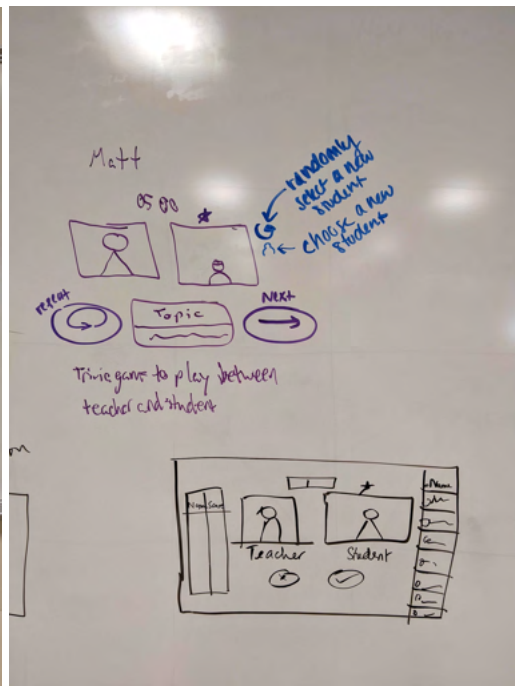 Matt
05 00
randomly
select a new
student
choose a new
student
repeat
Topic
Next
Trivia game to play between
teacher and student
Name
Name Score
Teacher
Student